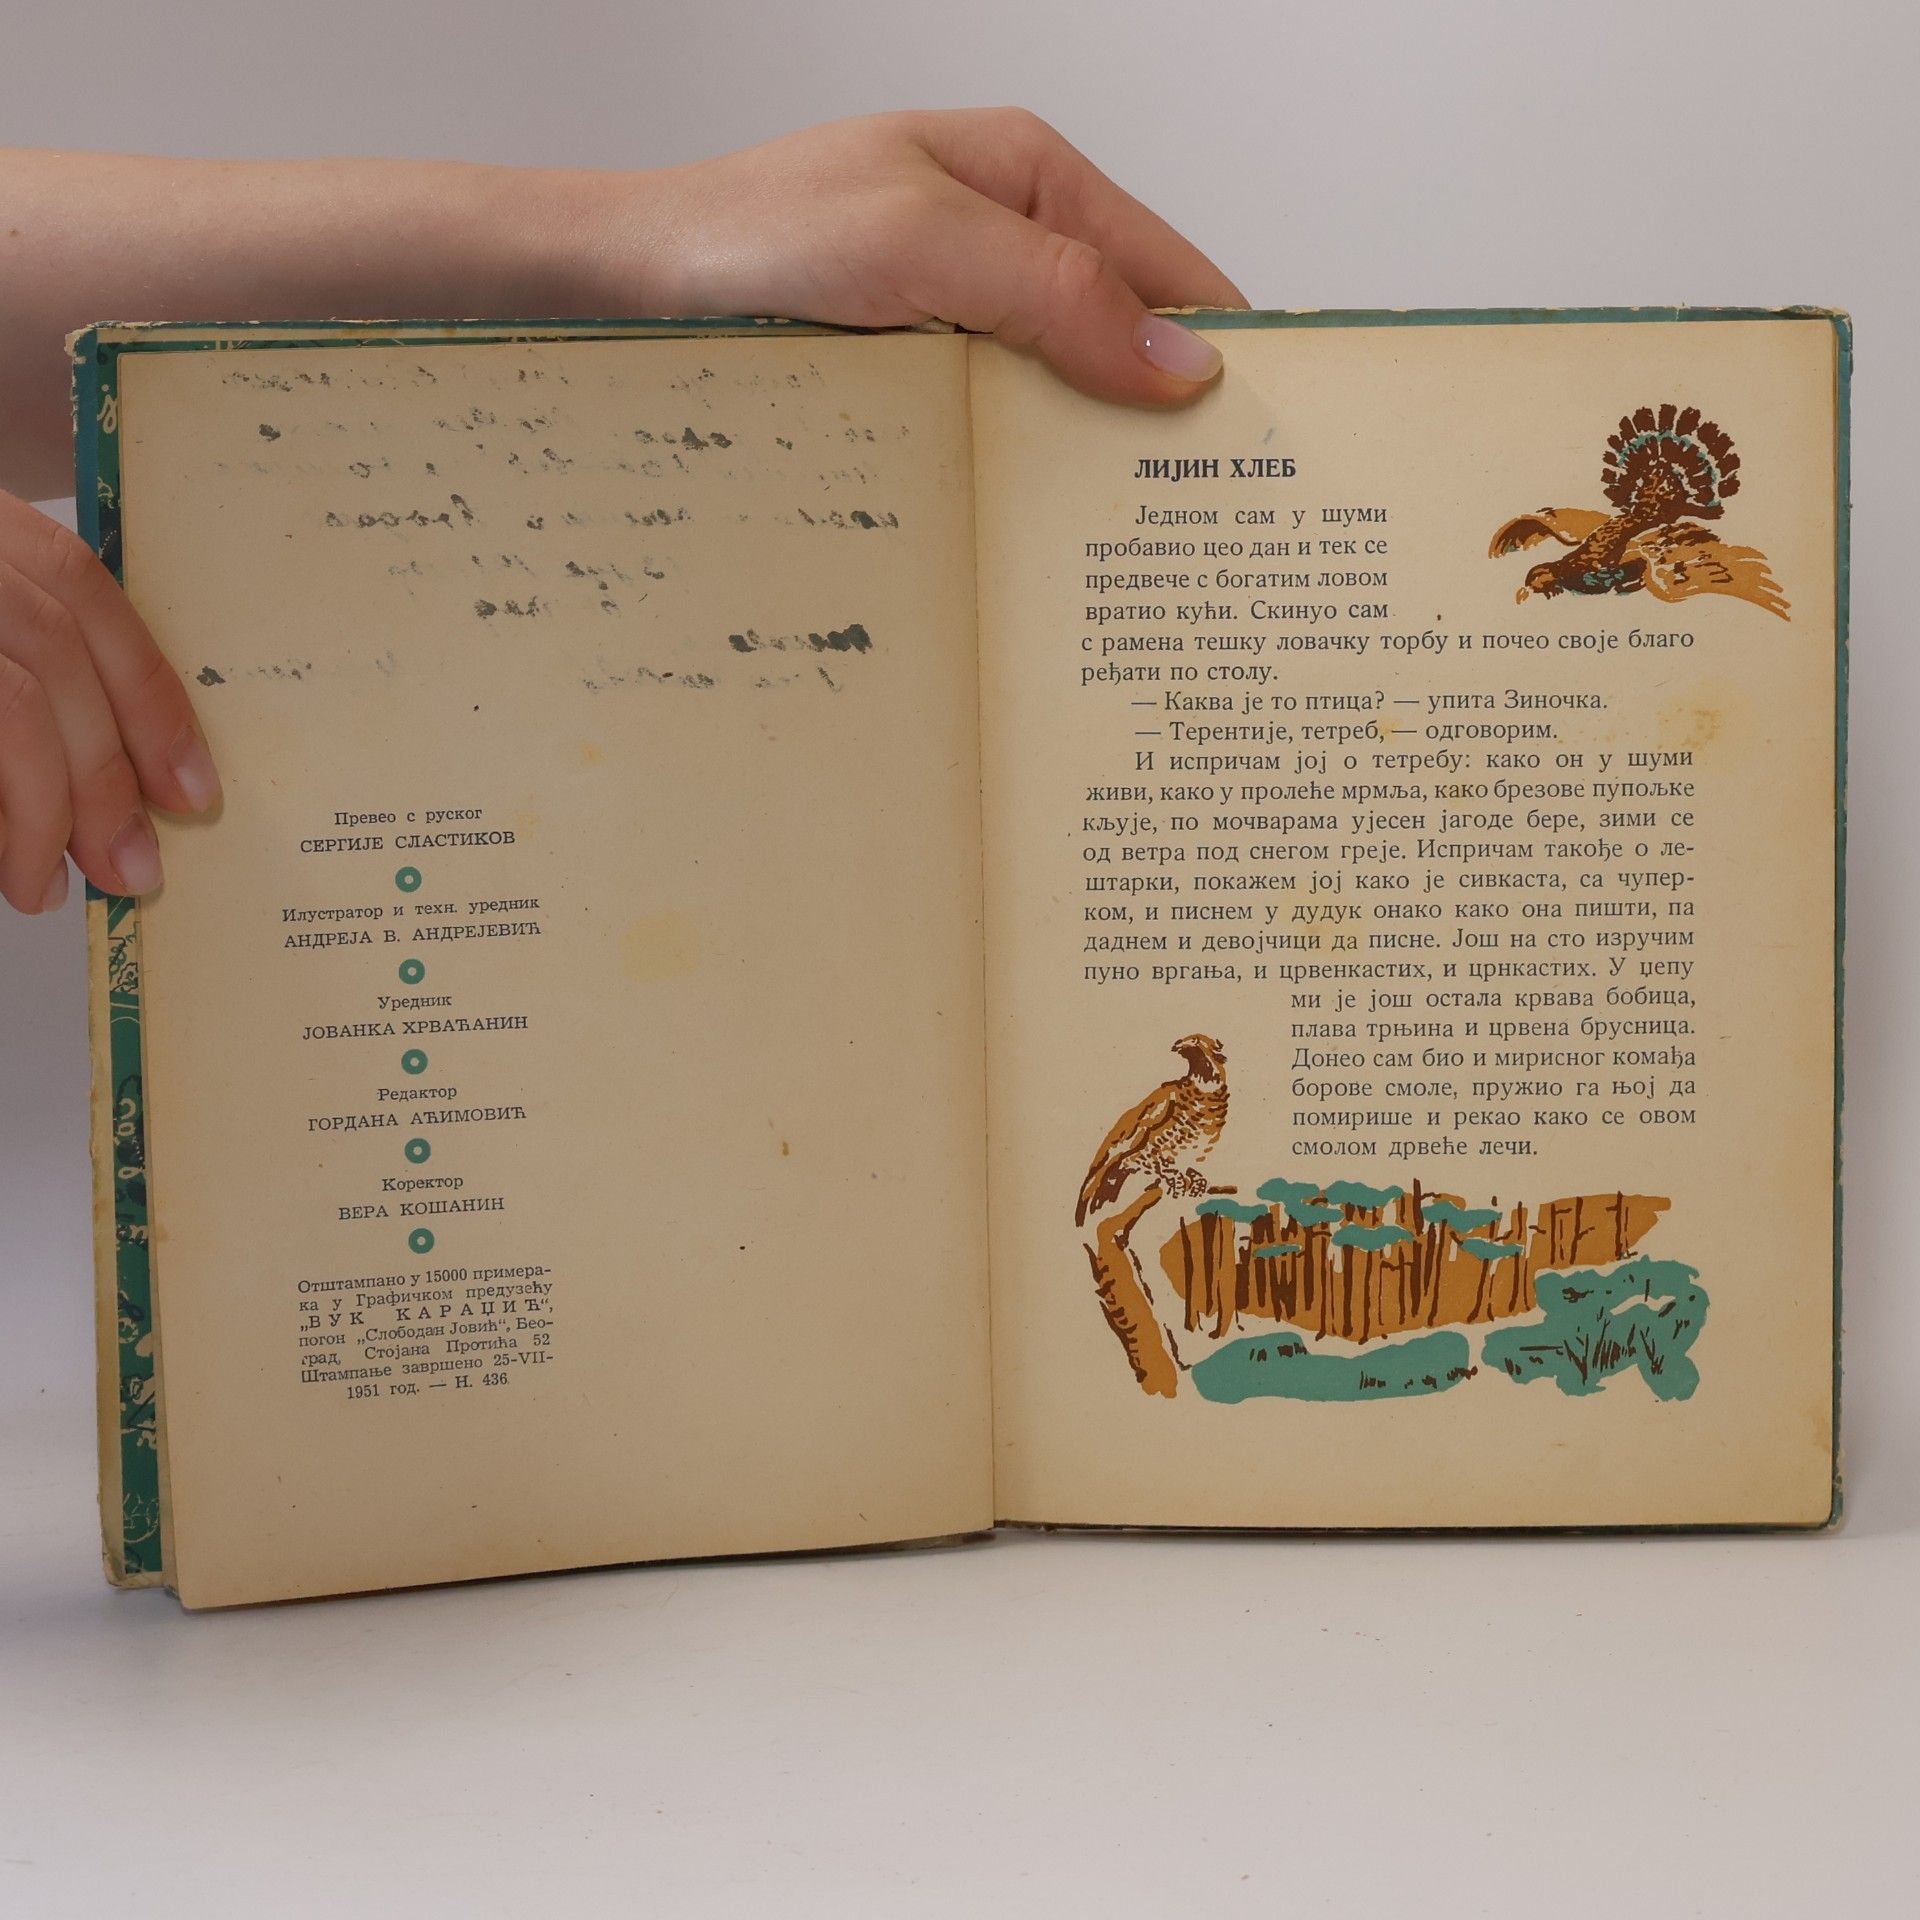 Превео с руског
СЕРГИЈЕ СЛАСТИКОВ
Илустратор и техн. уредник
АНДРЕЈА В. АНДРЕЈЕВИЋ
Уредник
ЈОВАНКА ХРВАЋАНИН
Редактор
ГОРДАНА АЋИМОВИЋ
Коректор
ВЕРА КОШАНИН
Отштампано у 15000 примера-
ка у Графичком предузећу
„ВУК КАРАЏИЋ“,
погон „Слободан Јовић“, Бео-
град, Стојана Протића 52
Штампање завршено 25-VII-
1951 год. — Н. 436
ЛИЈИН ХЛЕБ
Једном сам у шуми
пробавио цео дан и тек се
предвече с богатим ловом
вратио кући. Скинуо сам
с рамена тешку ловачку торбу и почео своје благо
ређати по столу.
— Каква је то птица? — упита Зиночка.
— Терентије, тетреб, — одговорим.
И испричам јој о тетребу: како он у шуми
живи, како у пролеће мрмља, како брезове пупољке
кљује, по мочварама ујесен јагоде бере, зими се
од ветра под снегом греје. Испричам такође о ле-
штарки, покажем јој како је сивкаста, са чупер-
ком, и писнем у дудук онако како она пишти, па
даднем и девојчици да писне. Још на сто изручим
пуно вргања, и црвенкастих, и црнкастих. У џепу
ми је још остала крвава бобица,
плава трњина и црвена брусница.
Донео сам био и мирисног комађа
борове смоле, пружио га њој да
помирише и рекао како се овом
смолом дрвеће лечи.